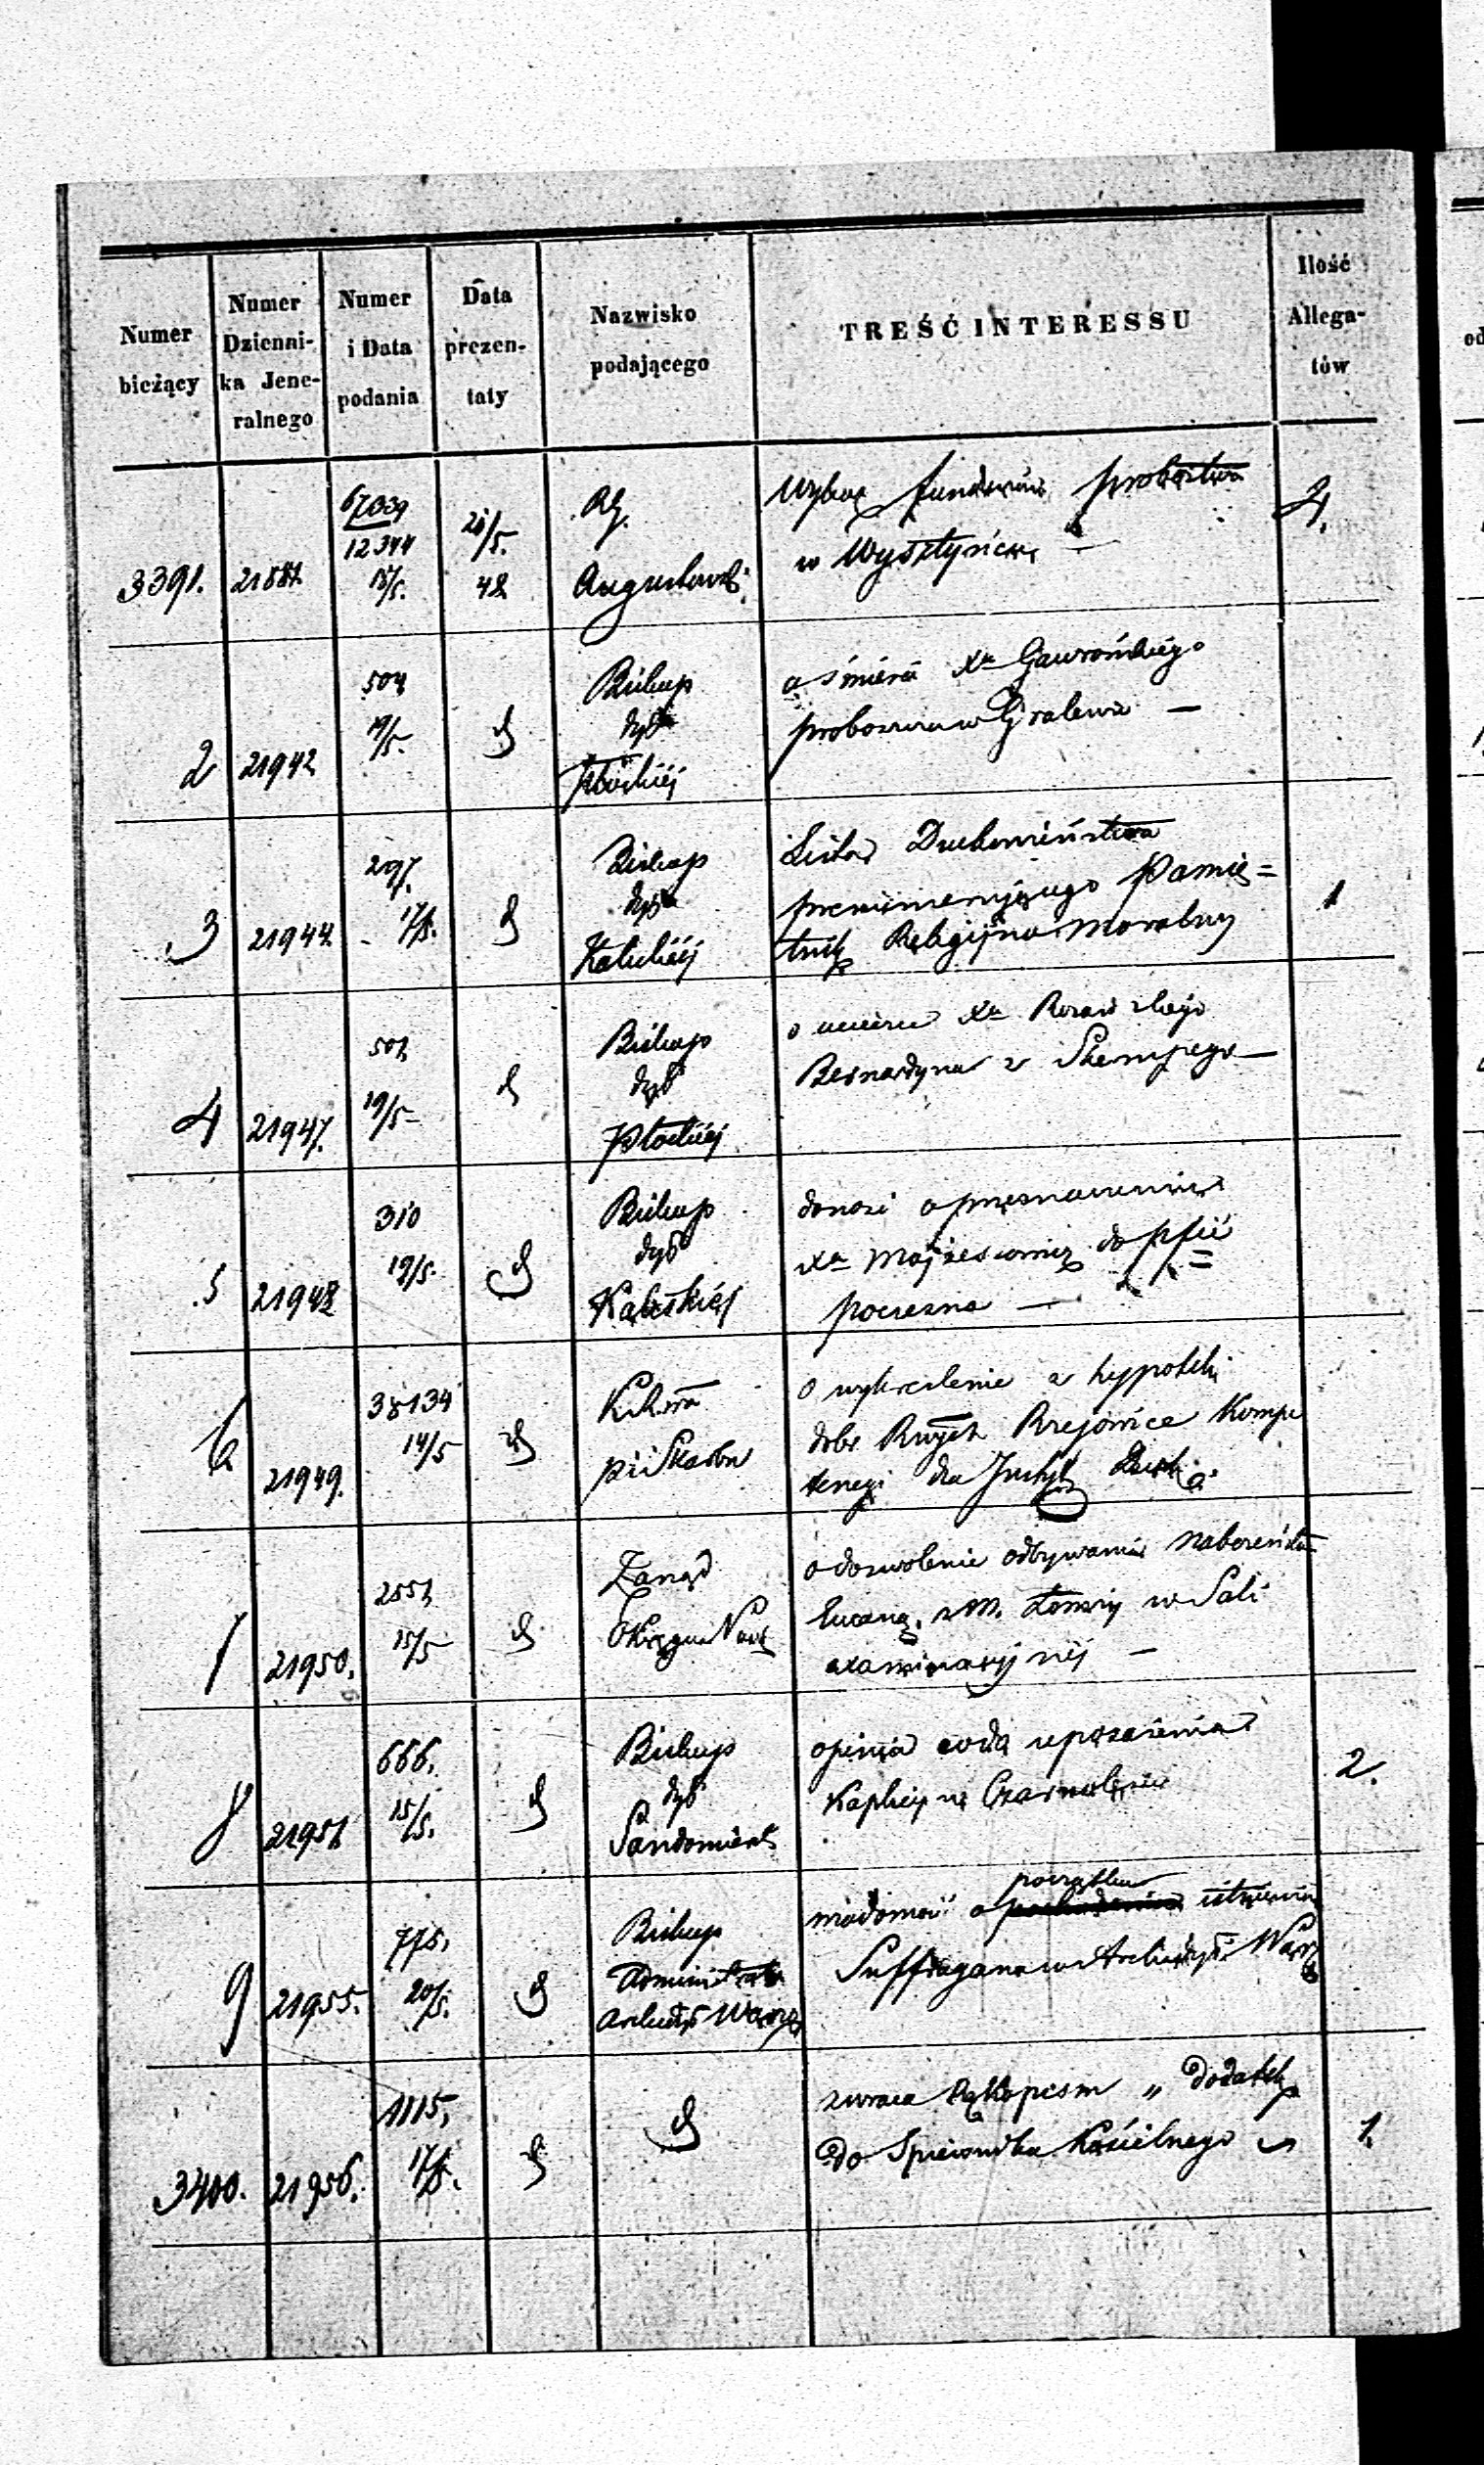 Numer bieżący
Numer Dzienni- ka Jene- ralnego
Numer i Data podania
Data prezen- taty
Nazwisko podającego
TREŚĆ INTERESSU
Ilość Allega- tów
3391.
2188
12344
21/5.
48
Augustowski
Wykaz funduszów probostwa
w Wysztyńcu —
2
21942
504
19/5.
Biskup
dyec
Płockiéj
o śmierci Xa Gawrońskiego
proboszcza w Gralewie —
3
21944
297.
17/5.
Biskup
Kaliskiéj
Lista Duchowieństwa
prenumerującego Pamię=
tnik Religijno moralny
1
4
21947.
501
19/5 -
Biskup
Płockiéj
o
Bernardyna z Skempego —
5
21948
310
19/5.
Biskup
Kaliskiéj
donosi o przeznaczeniu
Xa Mojżeszewicz do
poczesna —
6
21949.
38134
14/5
Skarbu
o wykreslenie z hypoteki
dobr Rzejowice Kompe
tencyi dla
7
21950.
2551
15/5
Zarząd
Okręgu Nauk
o dozwolenie odbywania nabożeństwa
Ewang. z M. Łomży w Sali
examinacyjnéj —
8
21951
666.
15/5.
Biskup
Sandomiersk
opinia wzgl. urządzenia
Kaplicy na Czarnolesie
2.
9
21955.
775.
20/5.
Biskup
Administrator
Archidyec Warsz
początku
wiadomość o istnienia
Suffragana w Archidyec. Warsz
3400.
21956.
1115.
17/5.
zwraca Rękopism „ Dodatek
do Spiewnika Kościelnego
1.